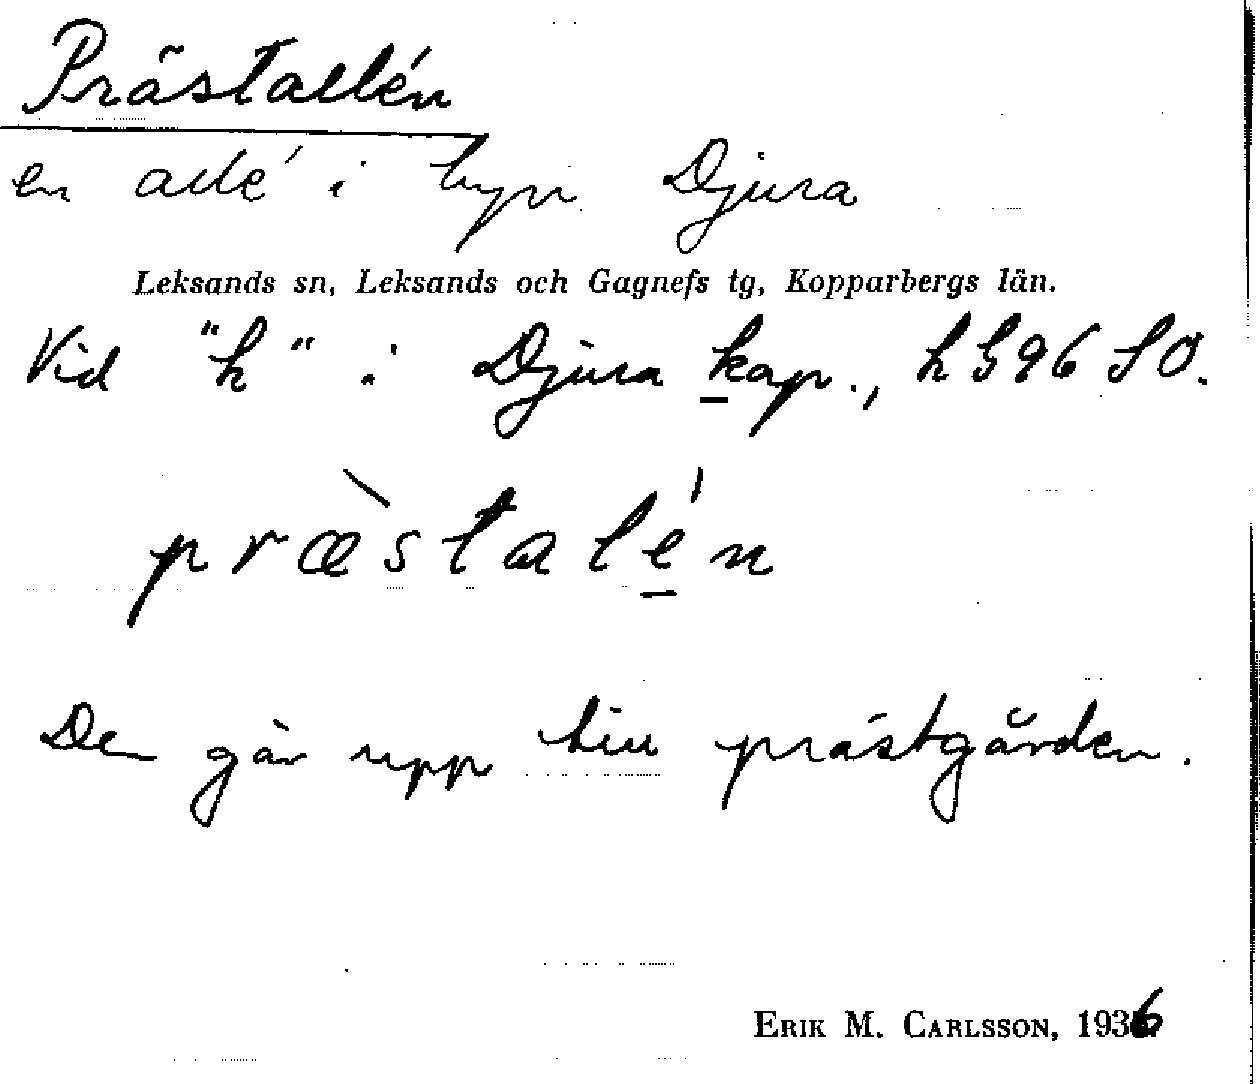 Prästallén
en allé i byn Djura
Leksands sn, Leksands och Gagnefs tg, Kopparbergs län.
Vid "k" i Djura kap., h596 SO.
præ̀stalé̱n
Den går upp till prästgården.
ERIK M. CARLSSON, 1936